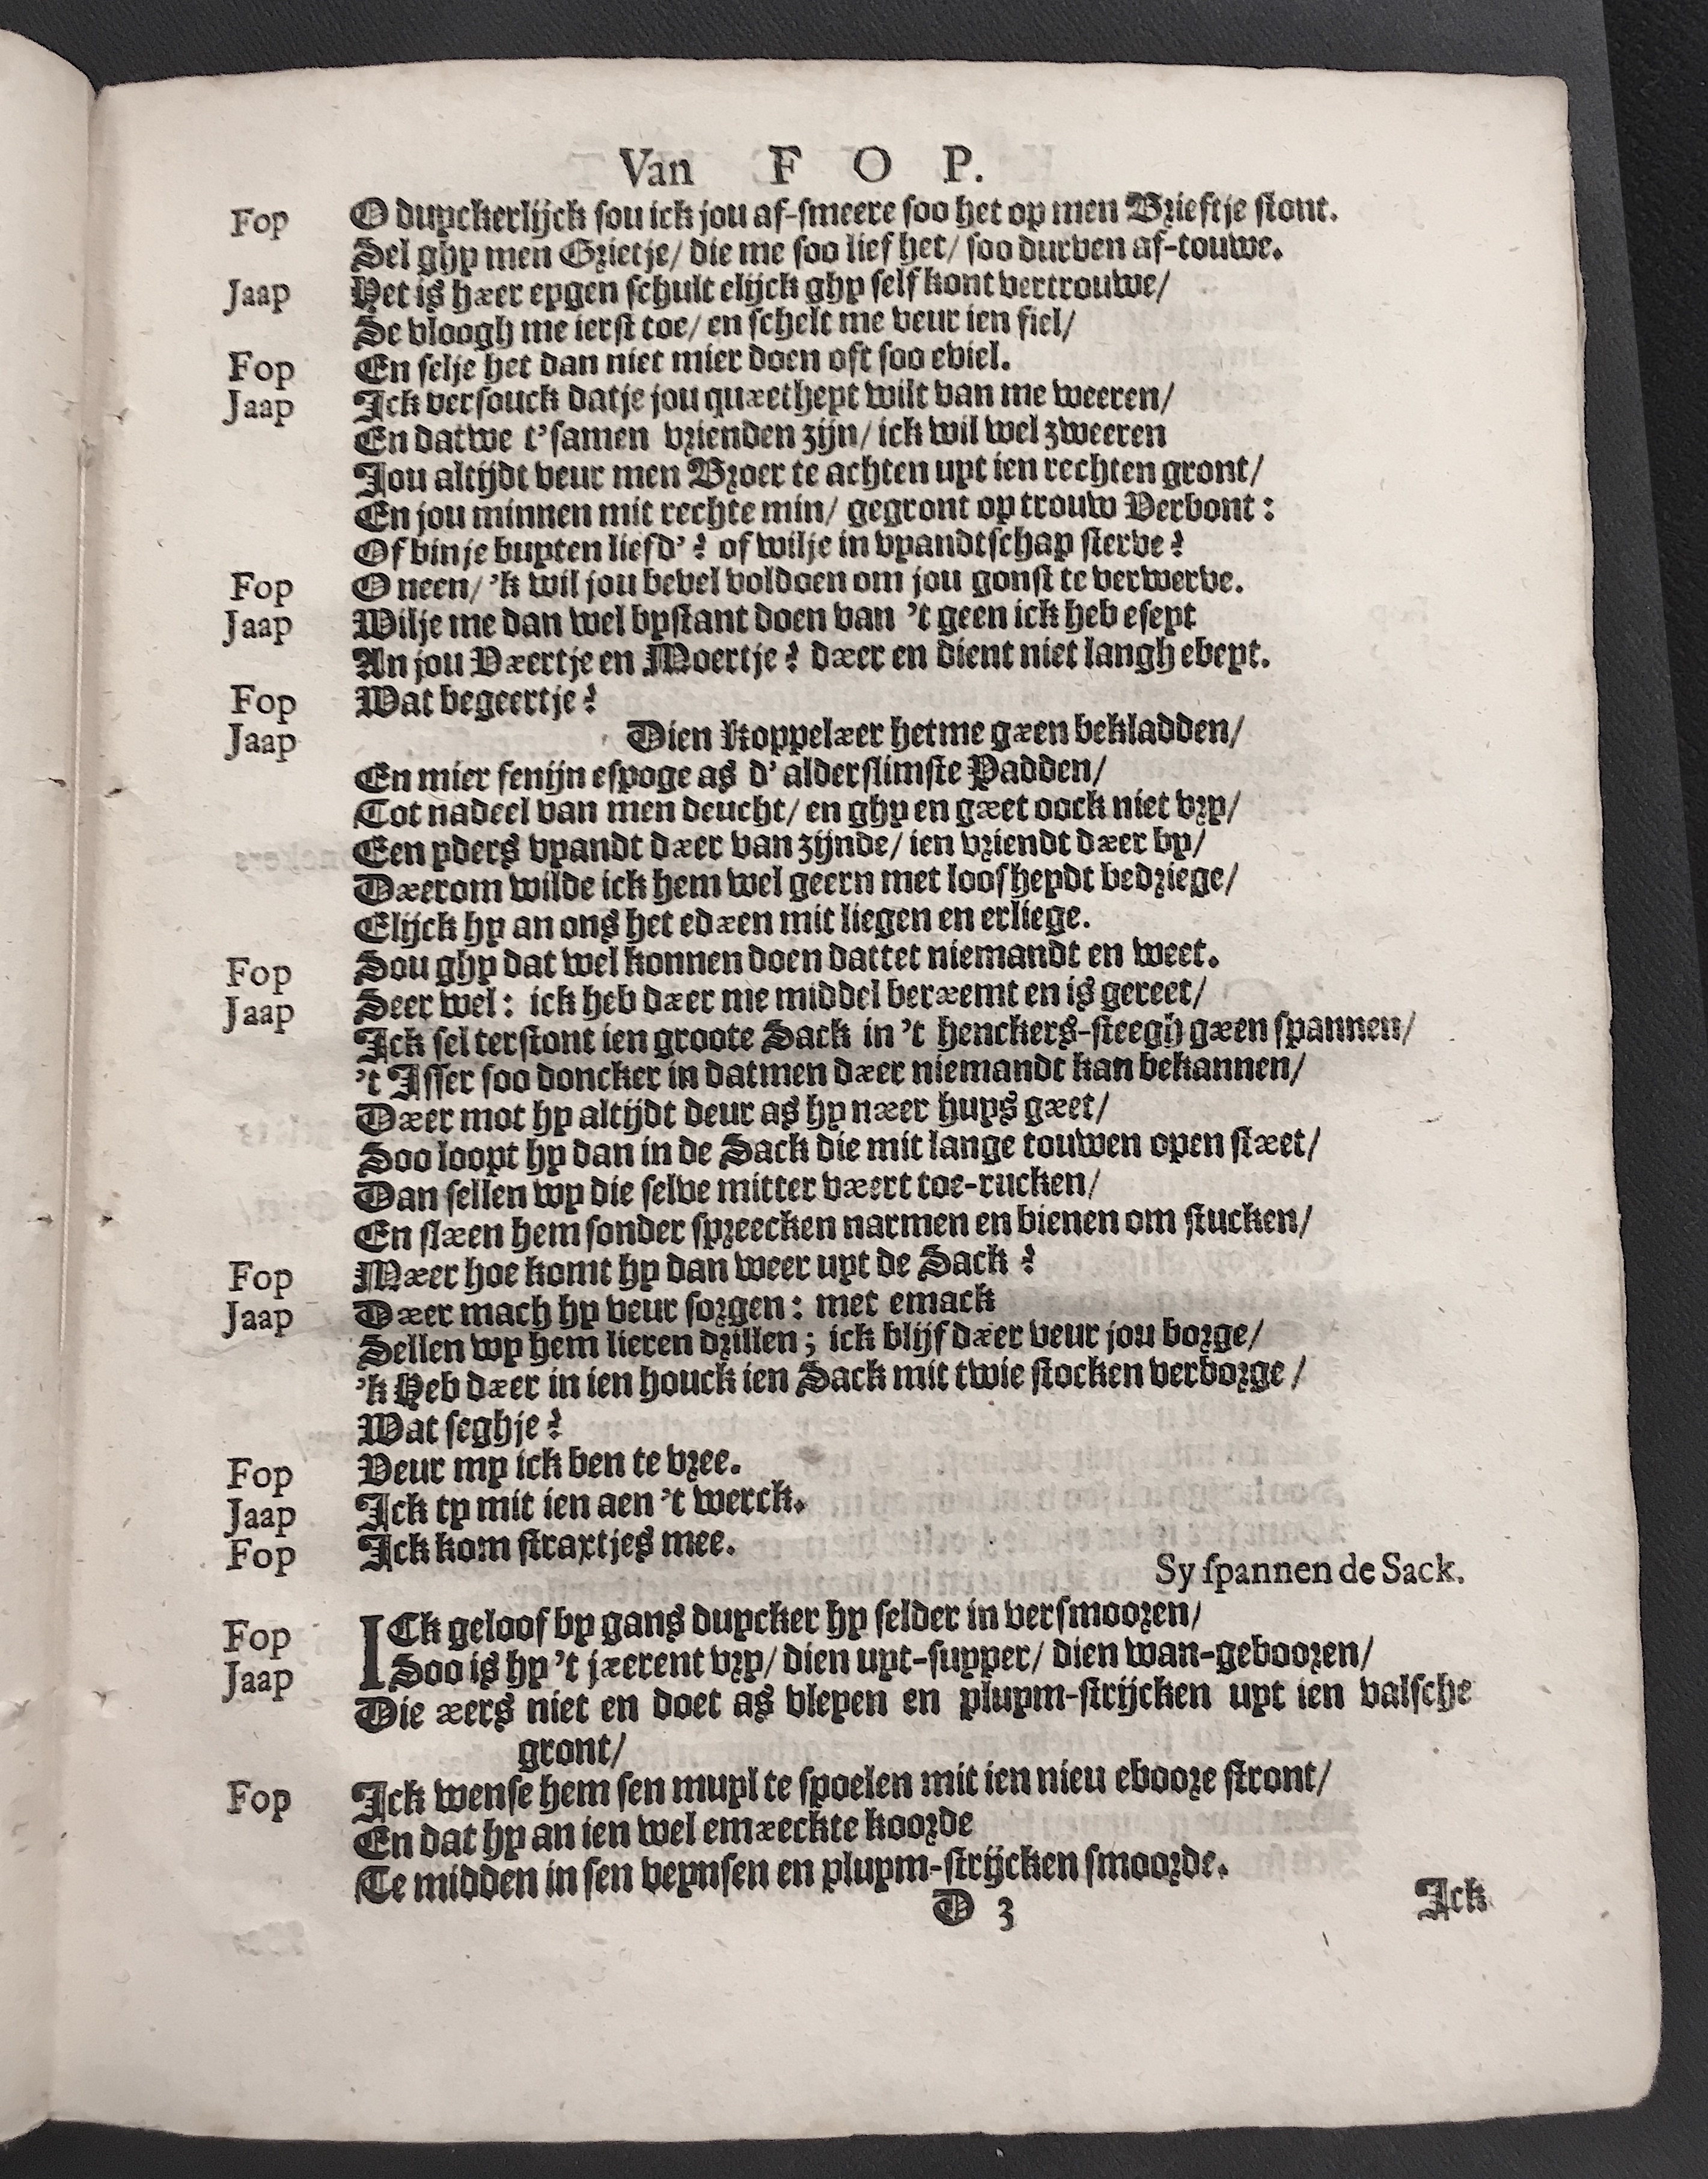 Van F O P.
Fop O duyckerlijck sou ick jou af-smeere soo het op men Brieftje stont.
Sel ghy men Grietje/ die me soo lief het/ soo durven af-touwe.
Jaap Het is hær eygen schult elijck ghy self kont vertrouwe/
Se vloogh me ierst toe/ en schelt me veur ien fiel/
Fop En selje het dan niet mier doen oft soo eviel.
Jaap Ick versouck datje jou quætheyt wilt van me weeren/
En datwe t'samen vrienden zijn/ ick wil wel zweeren
Jou altijdt veur men Broer te achten uyt ien rechten gront/
En jou minnen mit rechte min/ gegront op trouw Verbont:
Of binje buyten liefd'? of wilje in vyandtschap sterve?
Fop O neen/ 'k wil jou bevel voldoen om jou gonst te verwerve.
Jaap Wilje me dan wel bystant doen van 't geen ick heb eseyt
An jou Væertje en Moertje? dæer en dient niet langh ebeyt.
Fop Wat begeertje?
Jaap Dien Koppelæer het me gæen bekladden/
En mier fenijn espoge as d' alderslimste Padden/
Tot nadeel van men deucht/ en ghy en gæet oock niet vry/
Een yders vyandt dæer van zijnde/ ien vriendt dæer by/
Dæerom wilde ick hem wel geern met loosheydt bedriege/
Elijck hy an ons het edæen mit liegen en erliege.
Fop Sou ghy dat wel konnen doen dattet niemandt en weet.
Jaap Seer wel: ick heb dæer nie middel beræemt en is gereet/
Ick sel terstont ien groote Sack in 't henckers-steegh gæen spannen/
't Isser soo doncker in datmen dæer niemandt kan bekannen/
Dæer mot hy altijdt deur as hy næer huys gæet/
Soo loopt hy dan in de Sack die mit lange touwen open stæet/
Dan sellen wy die selve mitter væert toe-rucken/
En slæen hem sonder spreecken narmen en bienen om stucken/
Fop Mæer hoe komt hy dan weer uyt de Sack?
Jaap Dæer mach hy veur sorgen: met emack
Sellen wy hem lieren drillen; ick blijf dæer veur jou borge/
'k Heb dæer in ien houck ien Sack mit twie stocken verborge/
Wat seghje?
Fop Veur my ick ben te vree.
Jaap Ick ty mit ien aen 't werck.
Fop Ick kom straxtjes mee.
Sy spannen de Sack.
Fop ICk geloof by gans duycker hy selder in versmooren/
Jaap Soo is hy 't jæerent vry/ dien uyt-suyper/ dien wan-gebooren/
Die æers niet en doet as vleyen en pluym-strijcken uyt ien valsche
gront/
Fop Ick wense hem sen muyl te spoelen mit ien nieu eboore stront/
En dat hy an ien wel emæeckte koorde
Te midden in sen veynsen en pluym-strijcken smoorde.
D 3 Ick